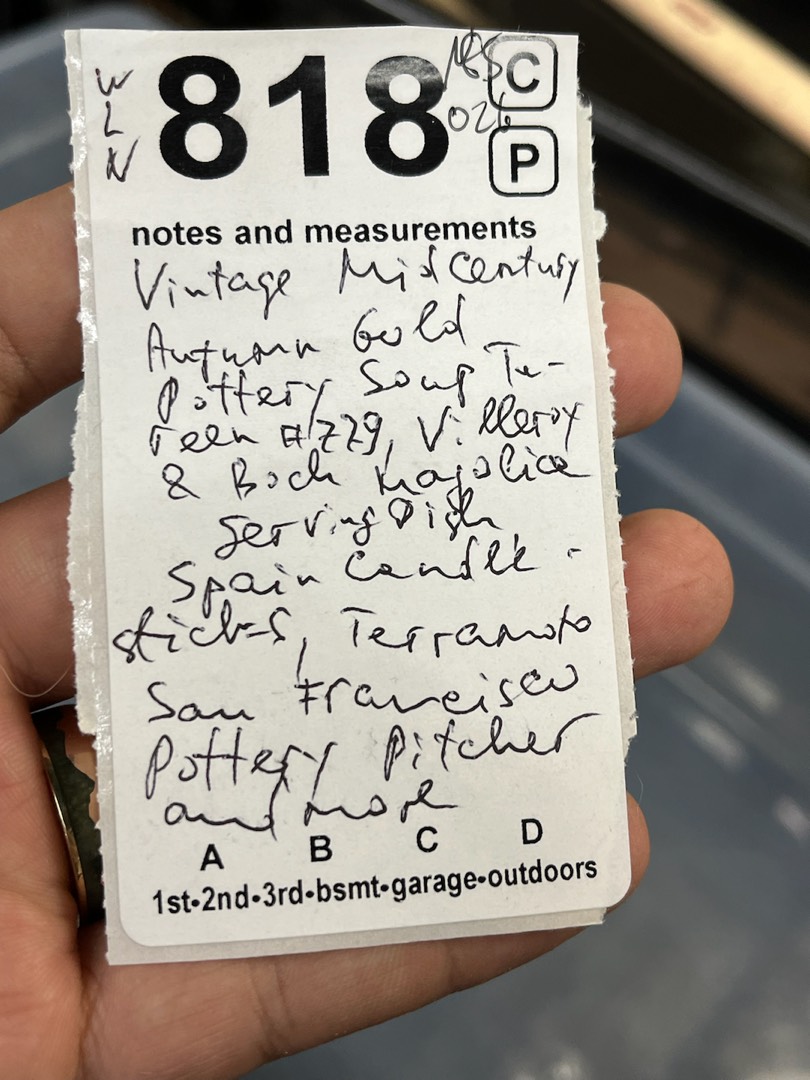 W
L
N
818
C
026
P
notes and measurements
Vintage MidCentury
Autumn Gold
Pottery Soup Tu-
reen #729, Villeroy
& Boch Majolica
Serving Dish
Spain Candle-
sticks, Terramoto
San Francisco
Pottery Pitcher
and more
A B C D
1st•2nd•3rd•bsmt•garage•outdoors